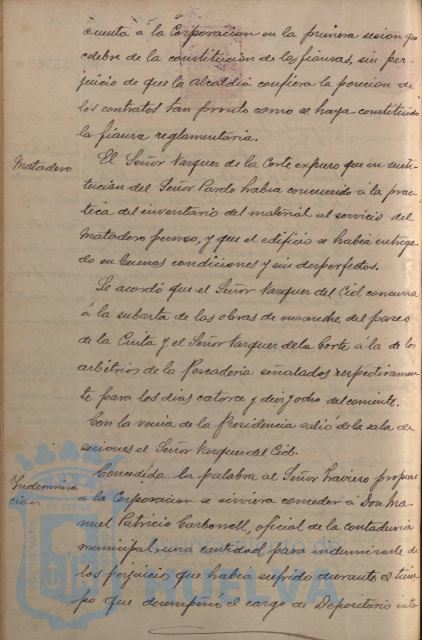 cuenta á la Corporacion en la primera sesion que
celebre de la constitucion de las fianzas, sin per-
juicio de que la alcaldia confiera la posesion de
los contratos tan pronto como se haya constituido
la fianza reglamentaria.
Matadero
El Señor Vazquez de la Corte expuso que en susti-
tucion del Señor Pardo habia concurrido á la prac-
tica del inventario del material al servicio del
Matadero publico, y que el edificio se habia entrega-
do en buenas condiciones y sin desperfectos.
Se acordó que el Señor Vazquez del Cid concurra
á la subasta de las obras de ensanche del paseo
de la Cinta y el Señor Vazquez de la Corte á la de los
arbitrios de la Pescaderia señalados respectivamen-
te para los dias catorce y diez y ocho del corriente.
Con la venia de la Presidencia salió de la sala de
sesiones el Señor Vazquez del Cid.
Indemniza
cion
Concedida la palabra al Señor Traviero propuso
á la Corporacion se sirviera conceder á Don Ma-
nuel Patricio Carbonell, oficial de la contaduria
municipal, una cantidad para indemnizarle de
los perjuicios que habia sufrido durante el tiem-
po que desempeñó el cargo de Depositario inte
HUELVA